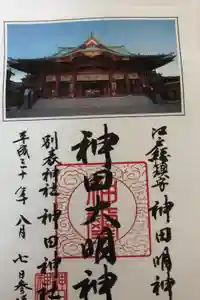 江戸総鎮守 神田明神
神田大明神
別表神社 神田神社
平成三十年八月七日参拝